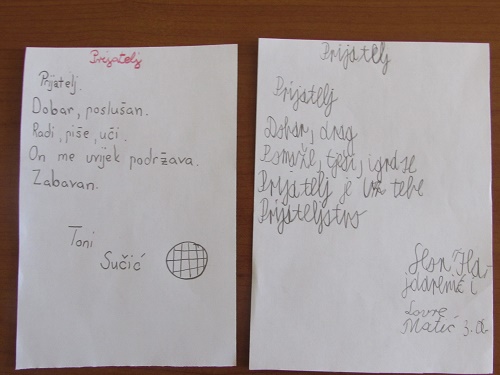 Prijatelj
Prijatelj.
Dobar, poslušan.
Radi, piše, uči.
On me uvijek podržava.
Zabavan.
Toni
Sučić
Prijatelj
Prijatelj
Dobar, drag
Pomaže, tješi, igra se
Prijatelj je uz tebe
Prijateljstvo
i
Lovre
Matić 3.